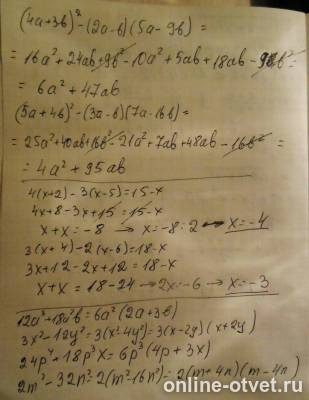 (4a+3b)²-(2a-b)(5a-9b)=
=16a²+24ab+9b²-10a²+5ab+18ab-9b²=
=6a²+47ab
(5a+4b)²-(3a-b)(7a-16b)=
=25a²+40ab+16b²-21a²+7ab+48ab-16b²=
=4a²+95ab
4(x+2)-3(x-5)=15-x
4x+8-3x+15=15-x
x+x=-8 → x=-8:2 → x=-4
3(x+4)-2(x-6)=18-x
3x+12-2x+12=18-x
x+x=18-24→2x=-6→x=-3
12a³+18a²b=6a²(2a+3b)
3x²-12y²=3(x²-4y²)=3(x-2y)(x+2y)
24p⁴+18p³x=6p³(4p+3x)
2m²-32n²=2(m²-16n²)=2(m+4n)(m-4n)
online-otvet.ru